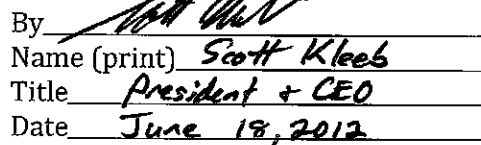 By
Name (print) Scott Kleeb
Title President + CEO
Date June 18, 2012